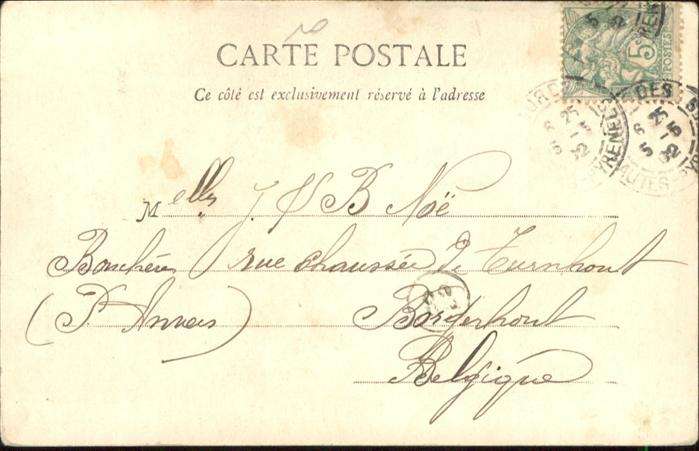 CARTE POSTALE
Ce côté est exclusivement réservé à l'adresse
5
POSTES
Melles J. & B Noë
Bouchère rue chaussée de Turnhout
(P. Anvers) Borgerhout
Belgique